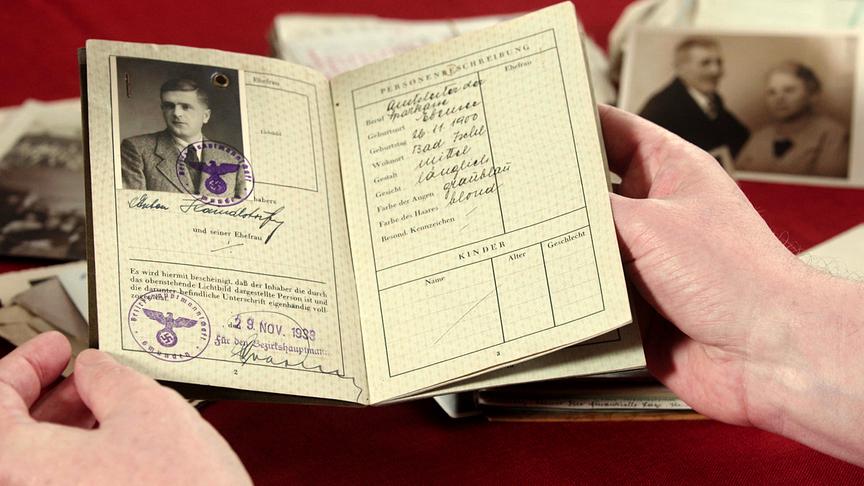 Ehefrau
habers
und seiner Ehefrau
Es wird hiermit bescheinigt, daß der Inhaber die durch
das obenstehende Lichtbild dargestellte Person ist und
die darunter befindliche Unterschrift eigenhändig voll-
Bezirkshauptmannschaft
Gmunden
29. NOV. 1938
Für den Bezirkshauptmann
2
PERSONENBESCHREIBUNG
Ehefrau
Beruf Amtsleiter der
Sparkasse
Geburtsort Ebensee
Geburtstag 26.11.1900
Wohnort Bad Ischl
Gestalt mittel
Gesicht länglich
Farbe der Augen graublau
Farbe des Haares blond
Besond. Kennzeichen
KINDER
Name Alter Geschlecht
3